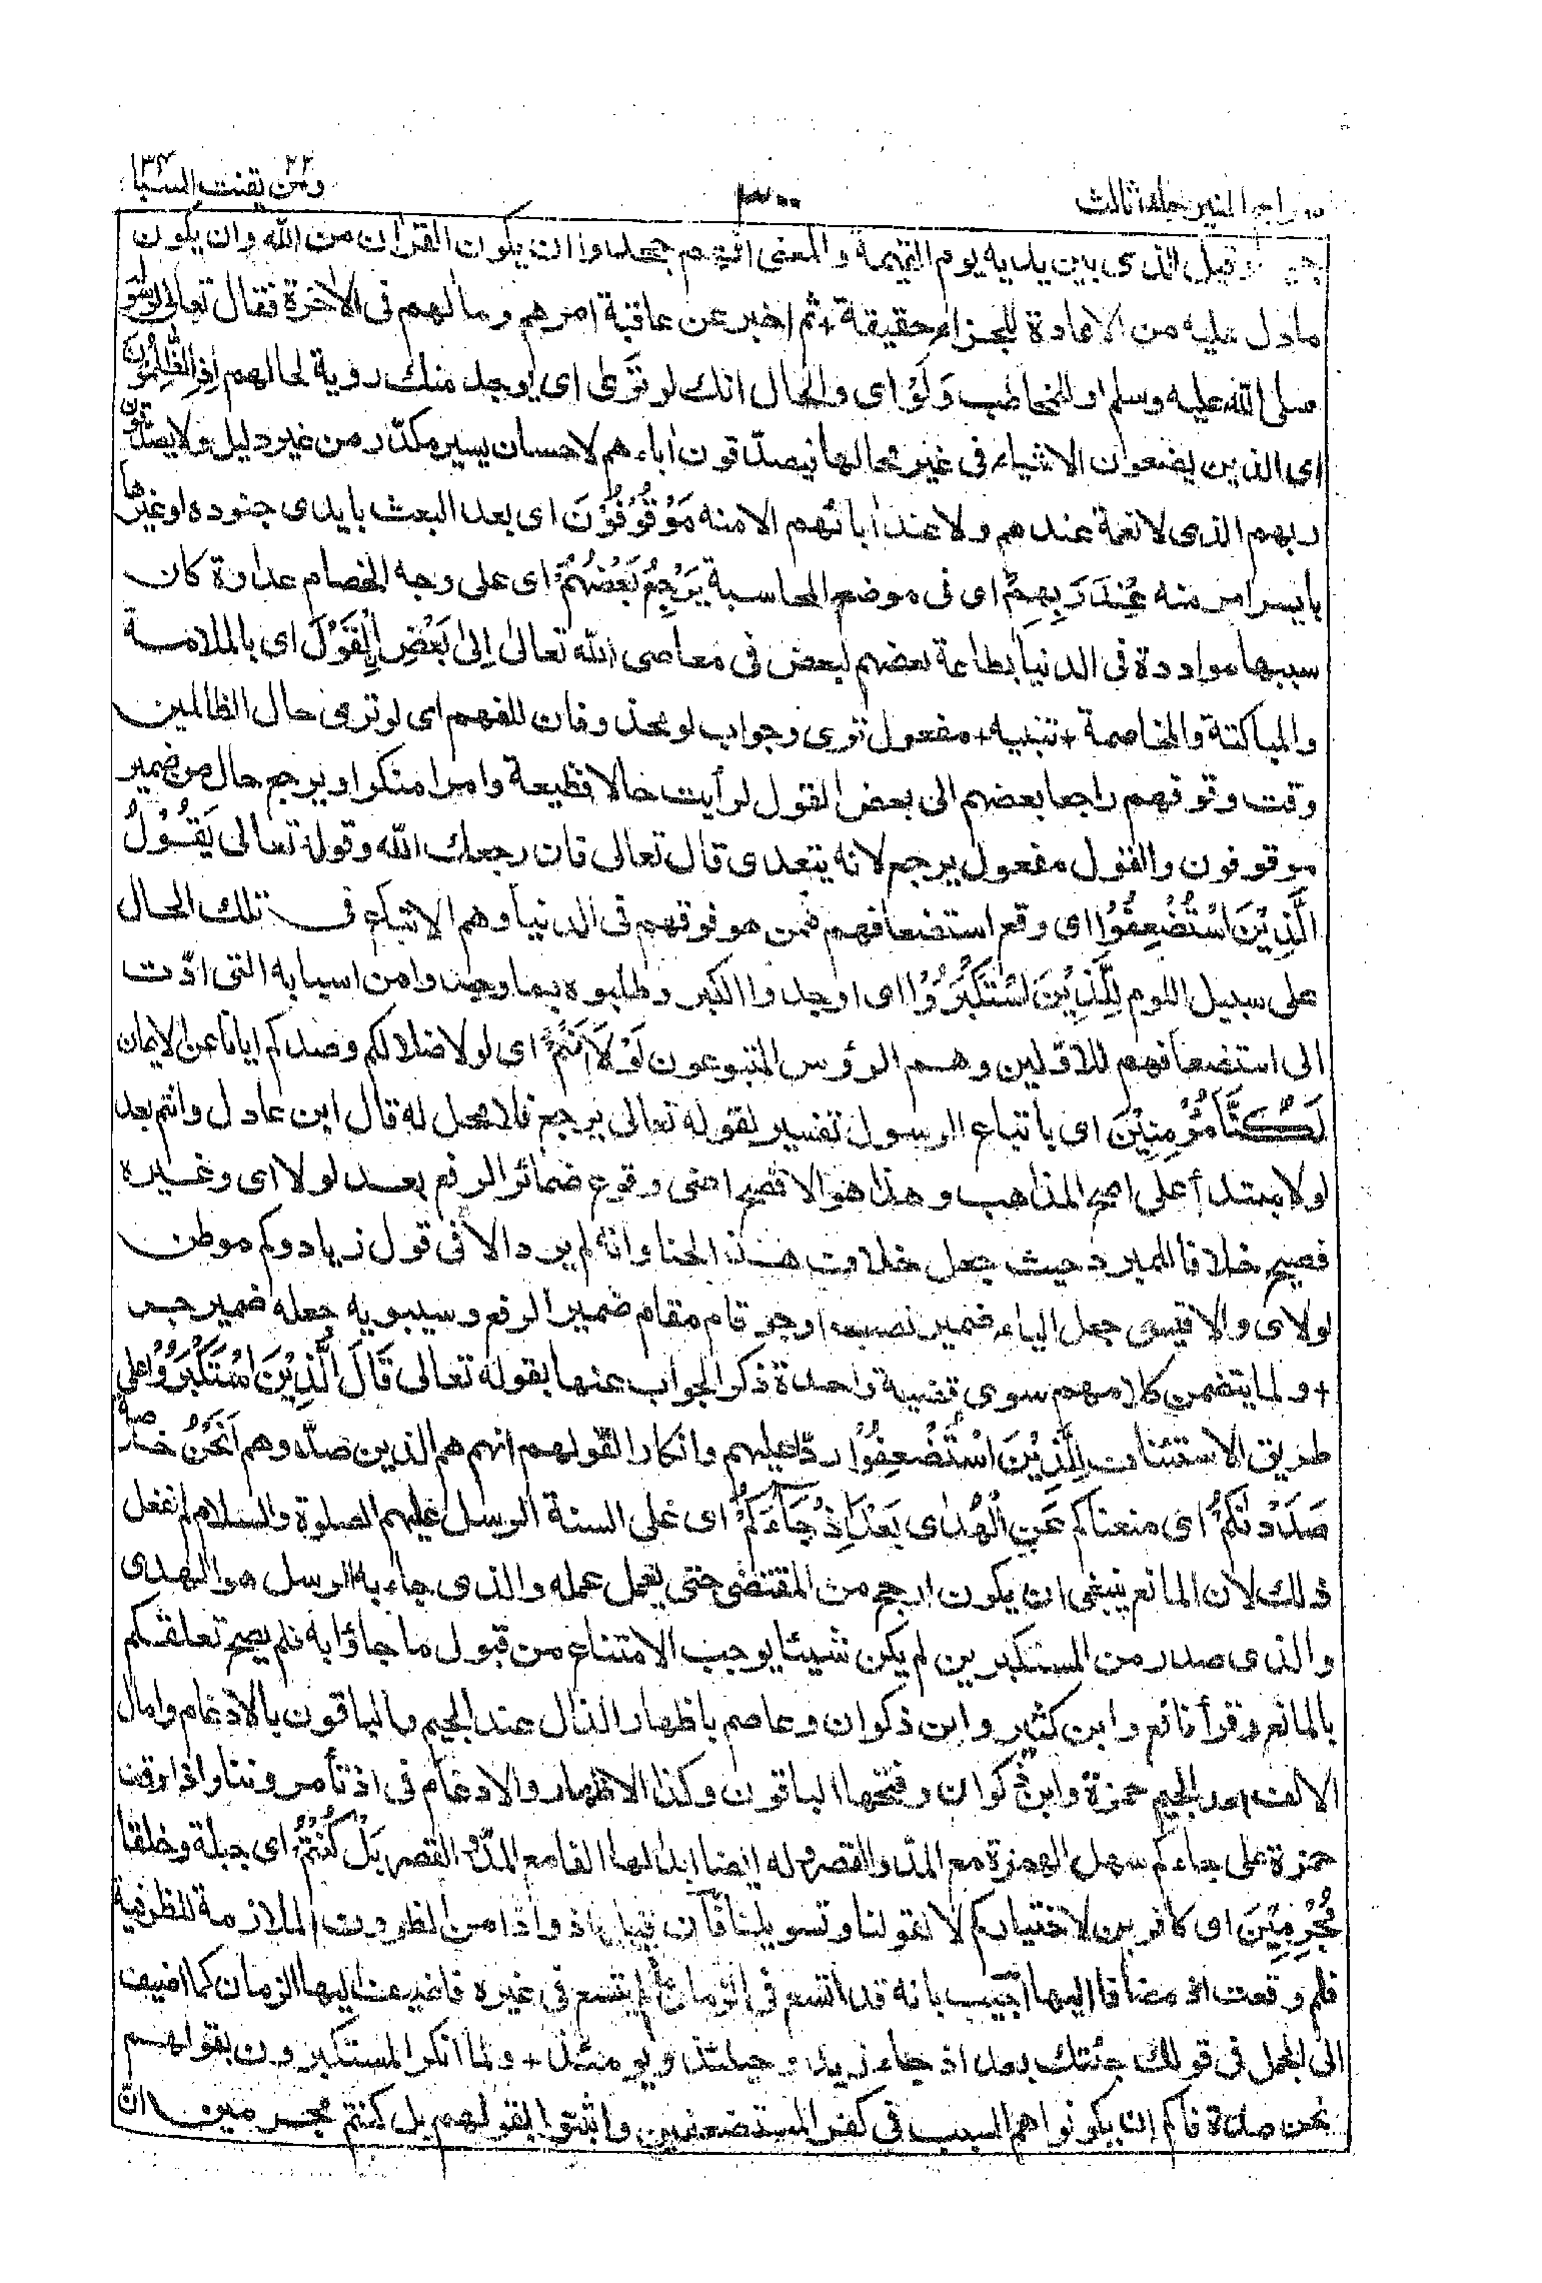 سراج المنير جلد ثالث
٣٠٠
ومن يقنت ٢٢ السبا ٣٤
وقيل الذى بين يديه يوم القيمة والمعنى انهم جحدوا ان يكون القرأن من الله وان يكون
مادل عليه من الاعادة للجزاء حقيقة + ثم اخبر عن عاقبة امرهم ومالهم فى الاخرة فقال تعالى لرسوله
صلى الله عليه وسلم او للمخاطب وَلَوْ اى والحال انك لو تَرٰى اى يوجد منك روية لحالهم اِذِ الظّٰلِمُوْنَ
اى الذين يضعون الاشياء فى غير محالها فيصدّقون اباءهم لاحسان يسير مكدّر من غير دليل ولا يصدّقون
ربهم الذى لا نعمة عندهم ولا عند ابائهم الا منه مَوْقُوْفُوْنَ اى بعد البعث بايدى جنوده او غيرها
بايسر امر منه عِنْدَ رَبِهِمْ اى فى موضع المحاسبة يَرْجِعُ بَعْضُهُمْ اى على وجه الخصام عداوة كان
سببها موادة فى الدنيا بطاعة بعضهم لبعض فى معاصى الله تعالى اِلٰى بَعْضِ اِلْقَوْلَ اى بالملامة
والمباكتة والمخاصمة + تنبيه + مفعول ترى وجواب لو محذوفان للفهم اى لو ترى حال الظالمين
وقت وقوفهم راجعا بعضهم الى بعض القول لرأيت حالا فظيعة وامرا منكرا ويرجع حال من ضمير
موقوفون والقول مفعول يرجع لانه يتعدى قال تعالى فان رجعك الله وقوله تعالى يَقُوْلُ
الَّذِيْنَ اسْتُضْعِفُوْا اى وقع استضعافهم فمن هو فوقهم فى الدنيا وهم الاتباع فى تلك الحال
على سبيل اللوم لِلَّذِيْنَ اسْتَكْبَرُوْا اى اوجدوا الكبر وطلبوه بما وجدوا من اسبابه التى ادّت
الى استضعافهم للاوّلين وهم الرؤس المتبوعون لَوْلَا اَنْتُمْ اى لولا ضلالكم وصدكم ايانا عن الايمان
لَكُنَّا مُؤْمِنِيْنَ اى باتباع الرسول تفسير لقوله تعالى يرجع فلا محل له قال ابن عادل وانتم بعد
لولا مبتدأ على اصح المذاهب وهذا هو الافصح اعنى وقوع ضمائر الرفع بعد لولا اى وغيره
فصيح خلافا للمبرد حيث جعل خلاف هذا لحنا وانه لم يرد الا فى قول زياد وكم موطن
لولاى والاخفش جعل الياء ضمير نصب او جر قام مقام ضمير الرفع وسيبويه جعله ضمير جر
+ ولما يتضمن كلامهم سوى قضية واحدة ذكر الجواب عنها بقوله تعالى قَالَ الَّذِيْنَ اسْتَكْبَرُوْا على
طريق الاستئناف لِلَّذِيْنَ اسْتُضْعِفُوْا ردّا عليهم وانكارا لقولهم انهم هم الذين صدّوهم اَنَحْنُ خاصة
صَدَدْنٰكُمْ اى منعناكم عَنِ الْهُدٰى بَعْدَ اِذْ جَاءَكُمْ اى على السنة الرسل عليهم الصلوة والسلام لم نفعل
ذلك لان المانع ينبغى ان يكون ارجح من المقتضى حتى يعمل عمله والذى جاء به الرسل هو الهدى
والذى صدر من المستكبرين لم يكن شيئا يوجب الامتناع من قبول ما جاؤا به فلم يصح تعلقكم
بالمانع وقرأ نافع وابن كثير وابن ذكوان وعاصم باظهار الذال عند الجيم والباقون بالادغام وامال
الالف بعد الجيم حمزة وابن ذكوان وفتحها الباقون وكذا الاظهار والادغام فى اذ تأمروننا واذا وقف
حمزة على جاءكم سهل الهمزة مع المدّ والقصر وله ايضا ابدالها الفا مع المدّ والقصر بَلْ كُنْتُمْ اى جبلة وخلقا
مُجْرِمِيْنَ اى كافرين لاختياركم لا لقولنا وتسويلنا فآن قيل اذ واذا من الظروف الملازمة للظرفية
فلم وقعت اذ مضافا اليها اجيب بانه قد اتسع فى الزمان ما لم يتسع فى غيره فاضيف اليها الزمان كما اضيف
الى الجمل فى قولك جئتك بعد اذ جاء زيد وحينئذ ويومئذ + ولما انكر المستكبرون بقولهم
نحن صددناكم ان يكونوا هم السبب فى كفر المستضعفين واثبتوا بقولهم بل كنتم مجرمين ان